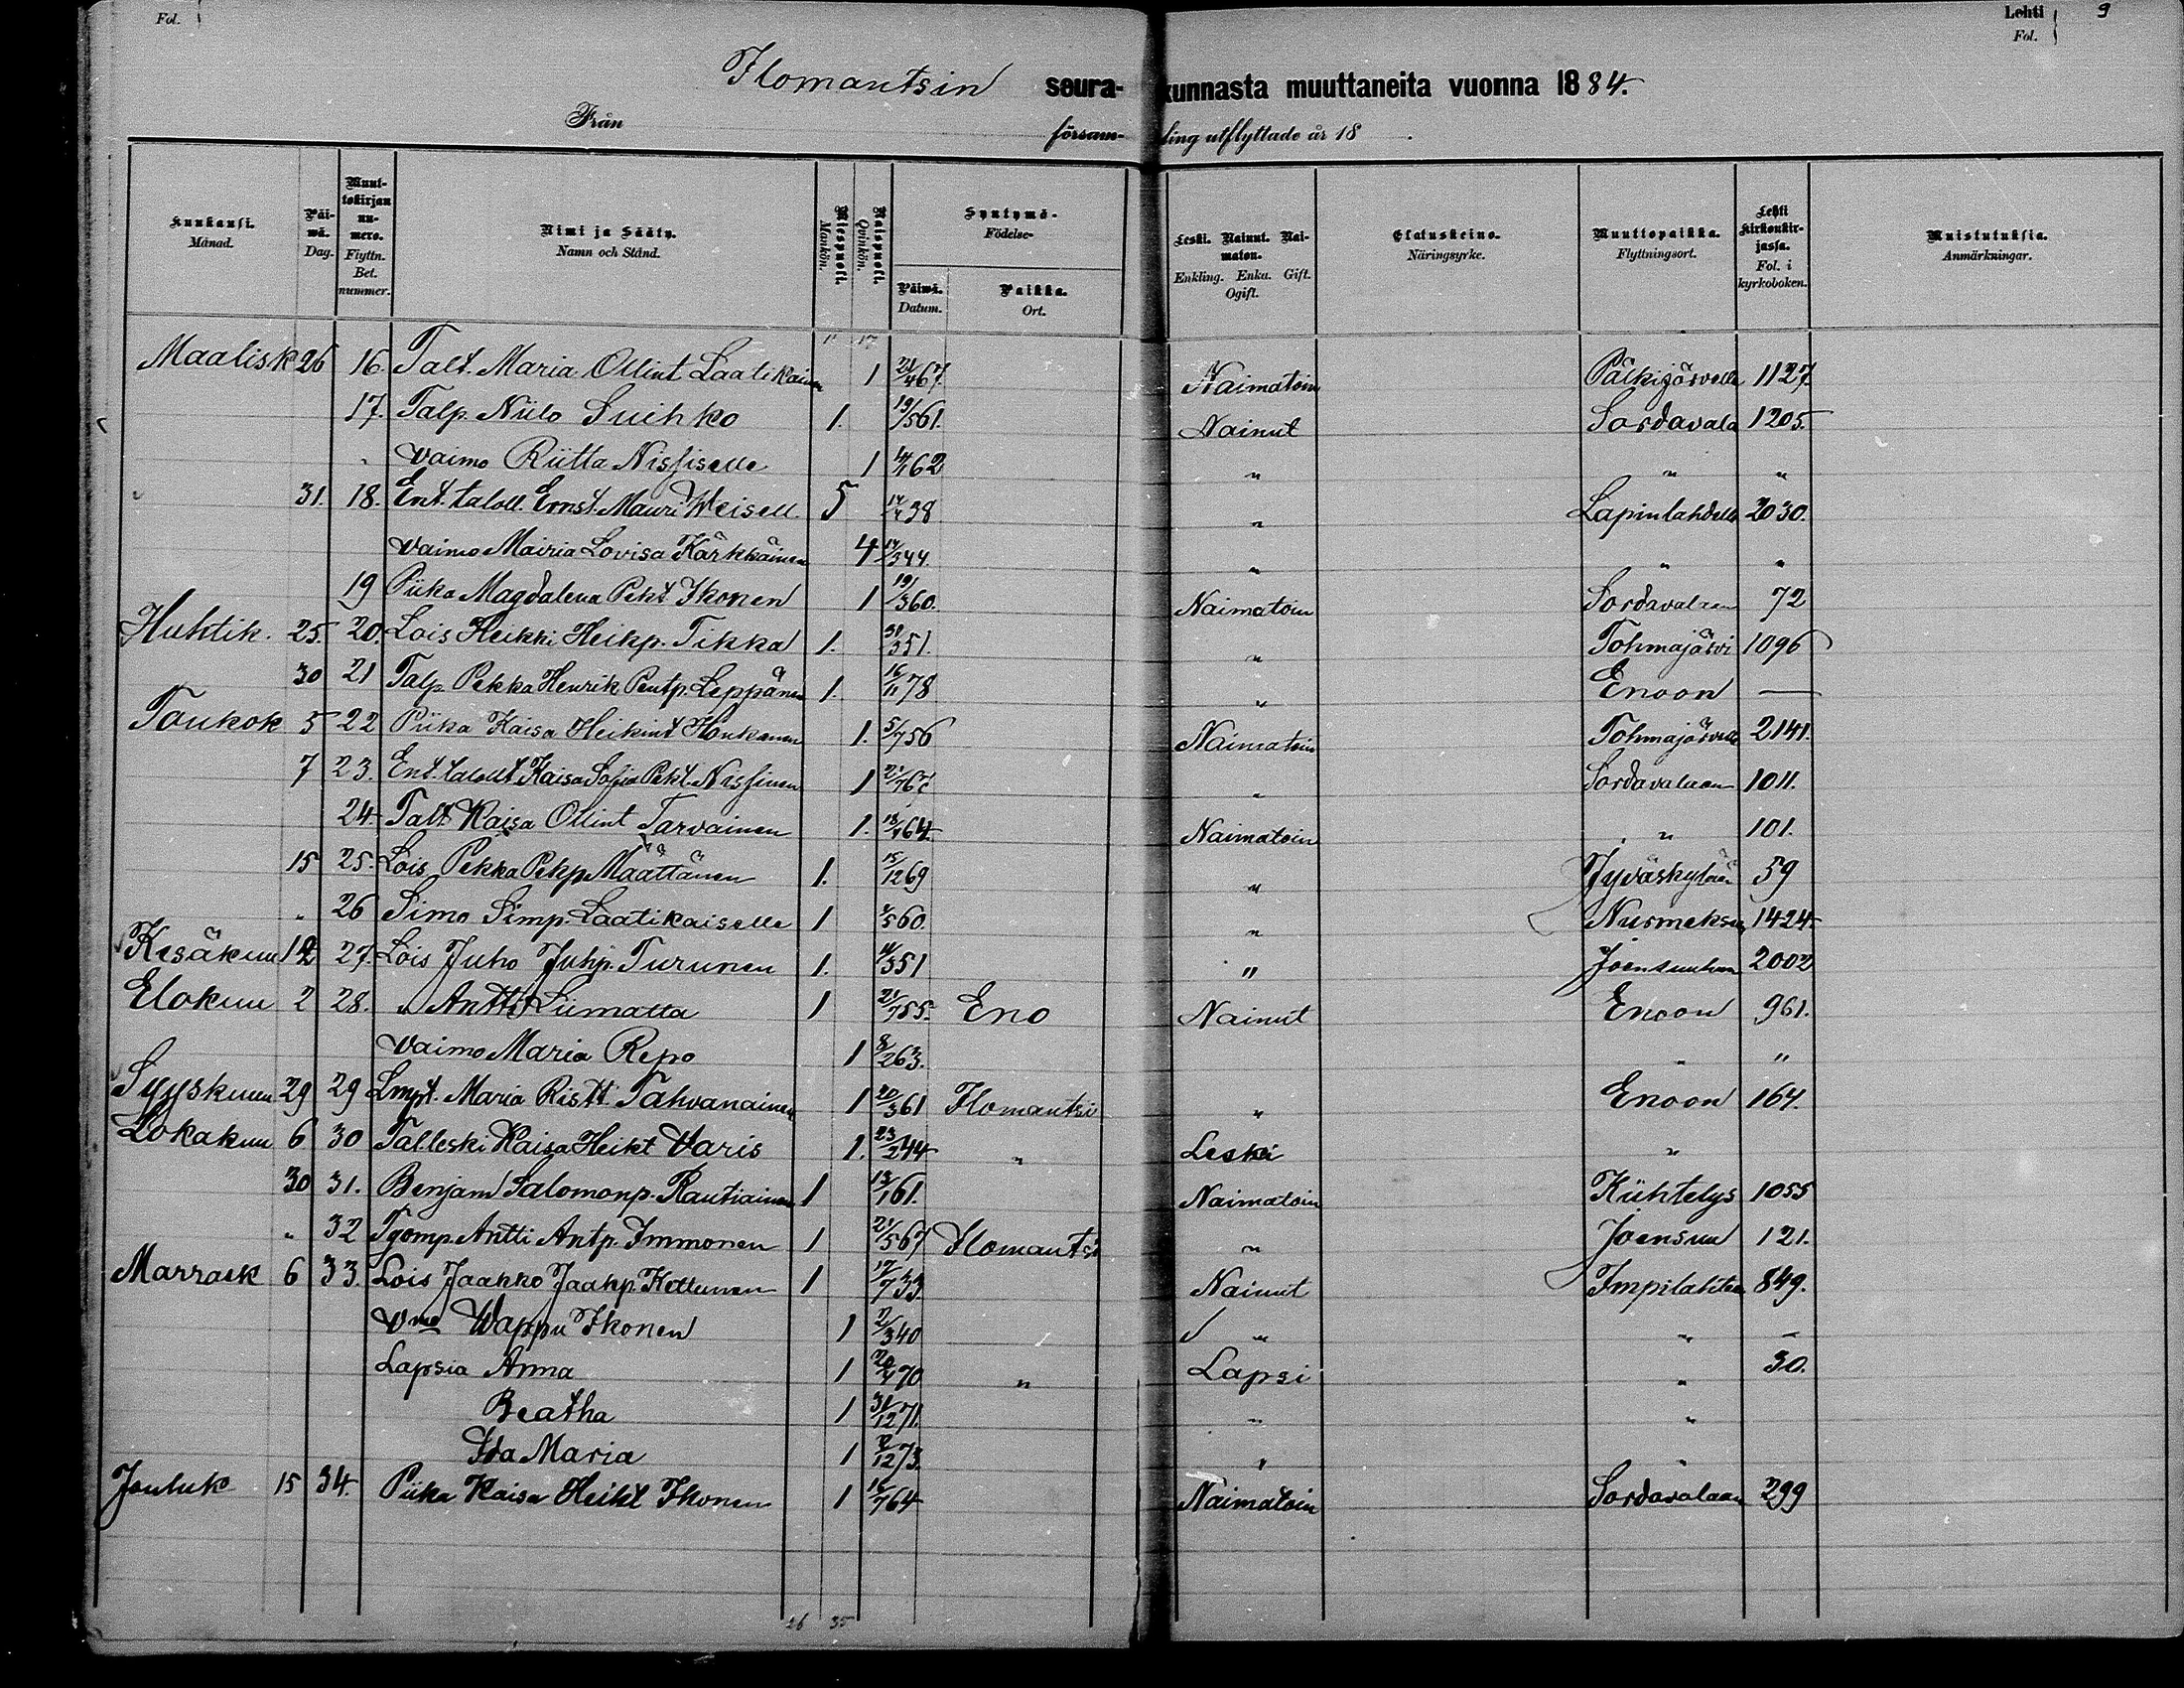 Fol.
Lehti 9
Fol.
Ilomantsin seura- kunnasta muuttaneita vuonna 1884.
Från försam- ling utflyttade år 18 .
Kuukausi. Månad.
Päi-wä. Dag.
Muut-tokirjan nu-mero. Flyttn. Bet. nummer.
Nimi ja Sääty. Namn och Stånd.
Miespuoli. Mankön.
Naispuoli. Qvinkön.
Syntymä- Födelse-
Päiwä. Datum.
Paikka. Ort.
Leski. Nainut. Nai-maton. Enkling. Enka. Gift. Ogift.
Elatuskeino. Näringsyrke.
Muuttopaikka. Flyttningsort.
Lehti kirkonkir-jassa. Fol. i kyrkoboken.
Muistutuksia. Anmärkningar.
11 17
Maalisk 26 16. Talt. Maria Ollint Laatikainen 1 21/4 67. Naimatoin Pälkijärvelle 1127
17. Talp. Niilo Suihko 1. 19/5 61. Nainut Sordavala 1205.
Vaimo Riitta Nissiselle 1 62 " " "
" 31. 18. Ent. taloll. Ernst Mauri Weisell 5 38 " Lapinlahdelle 2030.
Vaimo Mairia Lovisa Kärkkäinen 4 44. " " "
19 Piika Magdalena Pekt Ikonen 1 19/3 60. Naimatoin Sordavalaan 72
Huhtik. 25. 20. Lois Heikki Heikp. Tikka 1. 31/3 51. " Tohmajärvi 1096
30 21 Talp. Pekka Henrik Pentp. Leppänen 1. 16/11 78 " Enoon —
Toukok 5 22 Piika Kaisa Heikint Honkanen 1. 5/7 56 Naimatoin Tohmajärvelle 2141.
7 23. Ent. talollt Kaisa Sofia Pekt. Nissinen 1 67 " Sordavalaan 1011.
24. Talt. Kaisa Ollint Tarvainen 1. 64. Naimatoin " 101.
15 25. Lois Pekka Pekp. Määttänen 1. 15/12 69 " Jyväskylään 59
" 26 Simo Simp. Laatikaiselle 1 60. " Nurmeksen 1424.
Kesäkuu 12 27. Lois Juho Juhp. Turunen 1. 51 " Joensuuhun 2002
Elokuu 2 28. " Antti Liimatta 1 21/7 55. Eno Nainut Enoon 961.
Vaimo Maria Repo 1 8/2 63. " "
Syyskuu 29 29 Lmpt. Maria Ristt. Tahvanainen 1 20/3 61 Ilomantsi " Enoon 164.
Lokakuu 6 30 Tal.leski Kaisa Heikt Varis 1. 23/2 44 " Leski "
30 31. Benjam Salomonp. Rautiainen 1 13/1 61. Naimatoin Kiihtelys 1055
" 32 Tyomp. Antti Antp. Immonen 1 21/5 67 Ilomantsi " Joensuu 121.
Marrask 6 33. Lois Jaakko Jaakp. Kettunen 1 17/7 33 Nainut Impilahten 849.
Vmo Wappu Ikonen 1 2/3 40 " " –
Lapsia Anna 1 20/4 70 " Lapsi " 30.
Beatha 1 31/12 71. " "
Ida Maria 1 12 73. " "
Jouluk 15 34. Piika Kaisa Heikt Ikonen 1 16/7 64 Naimatoin Sordavalaan 299
26 35